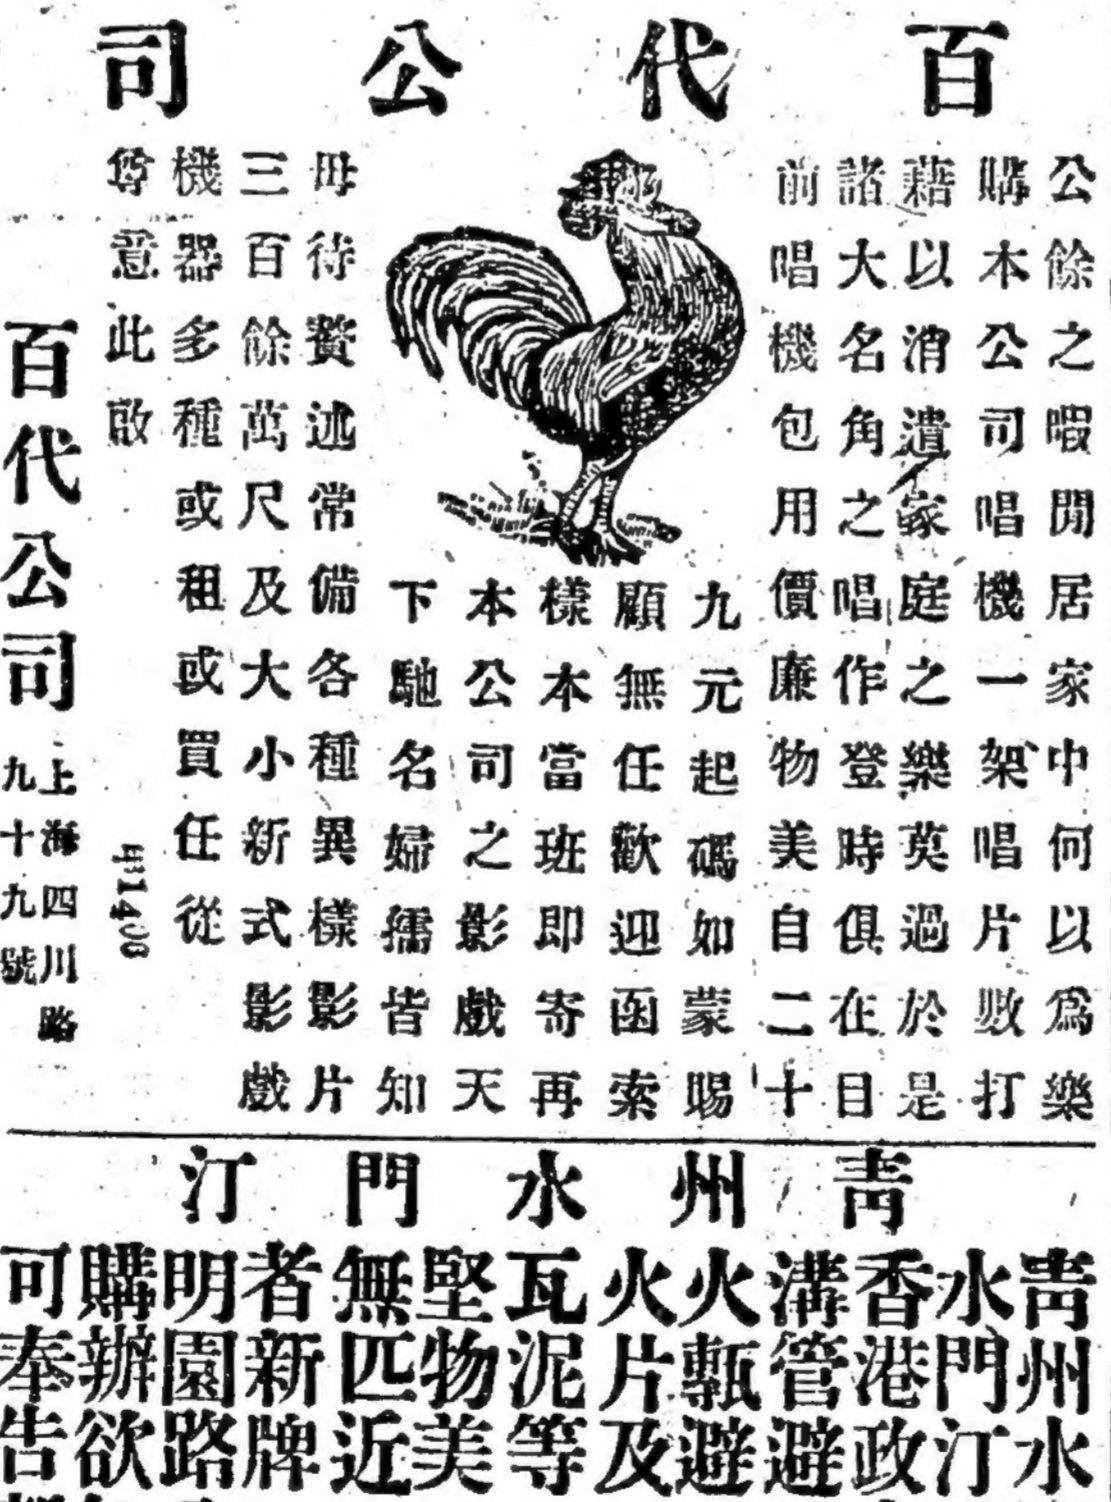 百代公司
公餘之暇閒居家中何以爲樂
購本公司唱機一架唱片數打
藉以消遣家庭之樂莫過於是
諸大名角之唱作登時俱在目
前唱機包用價廉物美自二十
九元起碼如蒙賜
顧無任歡迎函索
樣本當班即寄再
本公司之影戲天
下馳名婦孺皆知
毋待贅述常備各種異樣影片
三百餘萬尺及大小新式影戲
機器多種或租或買任從
尊意此啟
百代公司
上海四川路
九十九號
青州水門汀
青州水
水門汀
香港政
溝管避
火甎避
火片及
瓦泥等
堅物美
無匹近
者新牌
明園路
購辦欲
可奉告